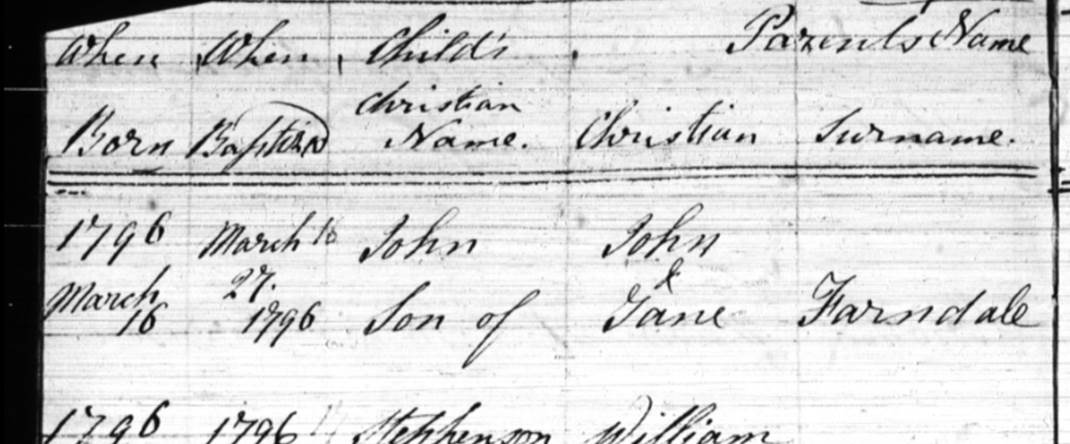 When When Child's Parents Name
Christian
Born Baptized Name. Christian Surname.
1796 March 18 John John
27. &
March 16 1796 Son of Jane Farndale
1796 1796 Stephenson William